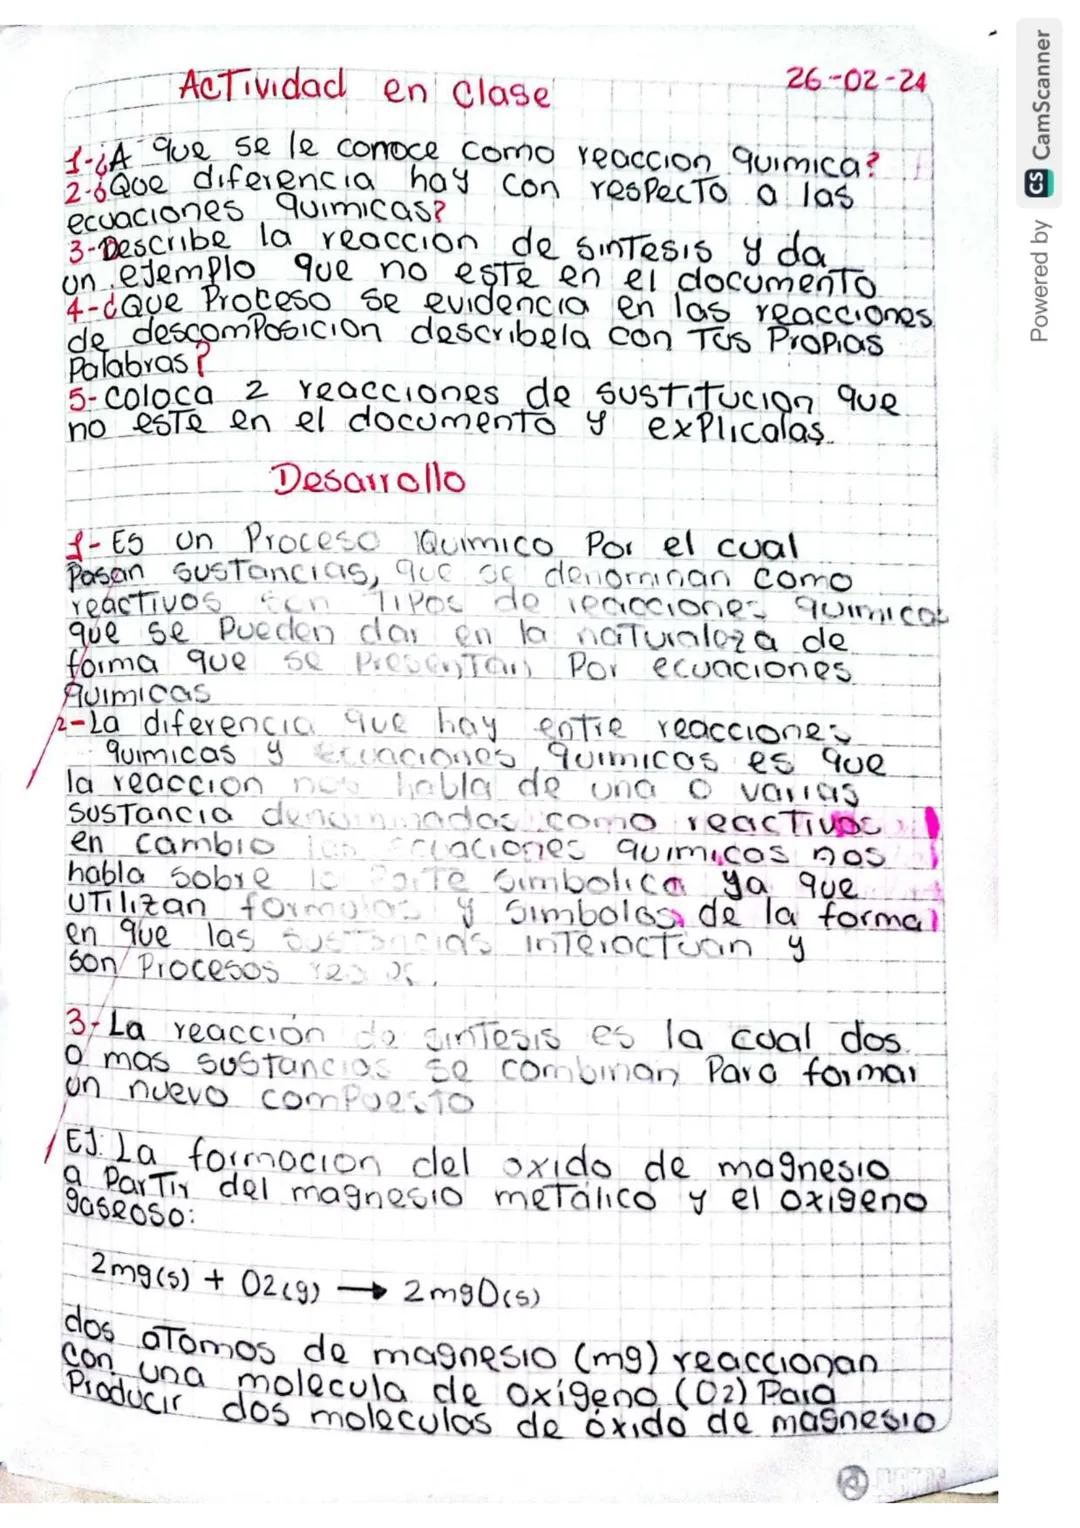 Actividad en clase
26-02-24
1-¿A que se le conoce como reaccion quimica?
2-¿Que diferencia hay con respecto a las
ecuaciones quimicas?
3-Describe la reaccion de sintesis y da
un ejemplo que no este en el documento
4-¿Que Proceso se evidencia en las reacciones
de descomposicion describela con Tus Propias
Palabras?
5-coloca 2 reacciones de sustitucion que
no este en el documento y explicalas.
Desarrollo
1-Es un Proceso Quimico Por el cual
Pasan sustancias, que se denominan como
reactivos son Tipos de reacciones quimicas
que se Pueden dar en la naturaleza de
forma que se Presentan Por ecuaciones
quimicas
2-La diferencia que hay entre reacciones
quimicas y ecuaciones quimicas es que
la reaccion nos habla de una o varias
sustancia denominadas como reactivos
en cambio las ecuaciones quimicas nos
habla sobre la Parte simbolica ya que
utilizan formulas y simbolos de la forma
en que las sustancias interactuan y
son Procesos
3-La reacción de sintesis es la cual dos
o mas sustancias se combinan Para formar
un nuevo compuesto
EJ: La formacion del oxido de magnesio
a Partir del magnesio metálico y el oxigeno
gaseoso:
2mg(s) + O2(g) → 2mgO(s)
dos atomos de magnesio (mg) reaccionan
con una molecula de oxígeno (O2) Para
Producir dos moleculas de óxido de magnesio
Powered by CS CamScanner